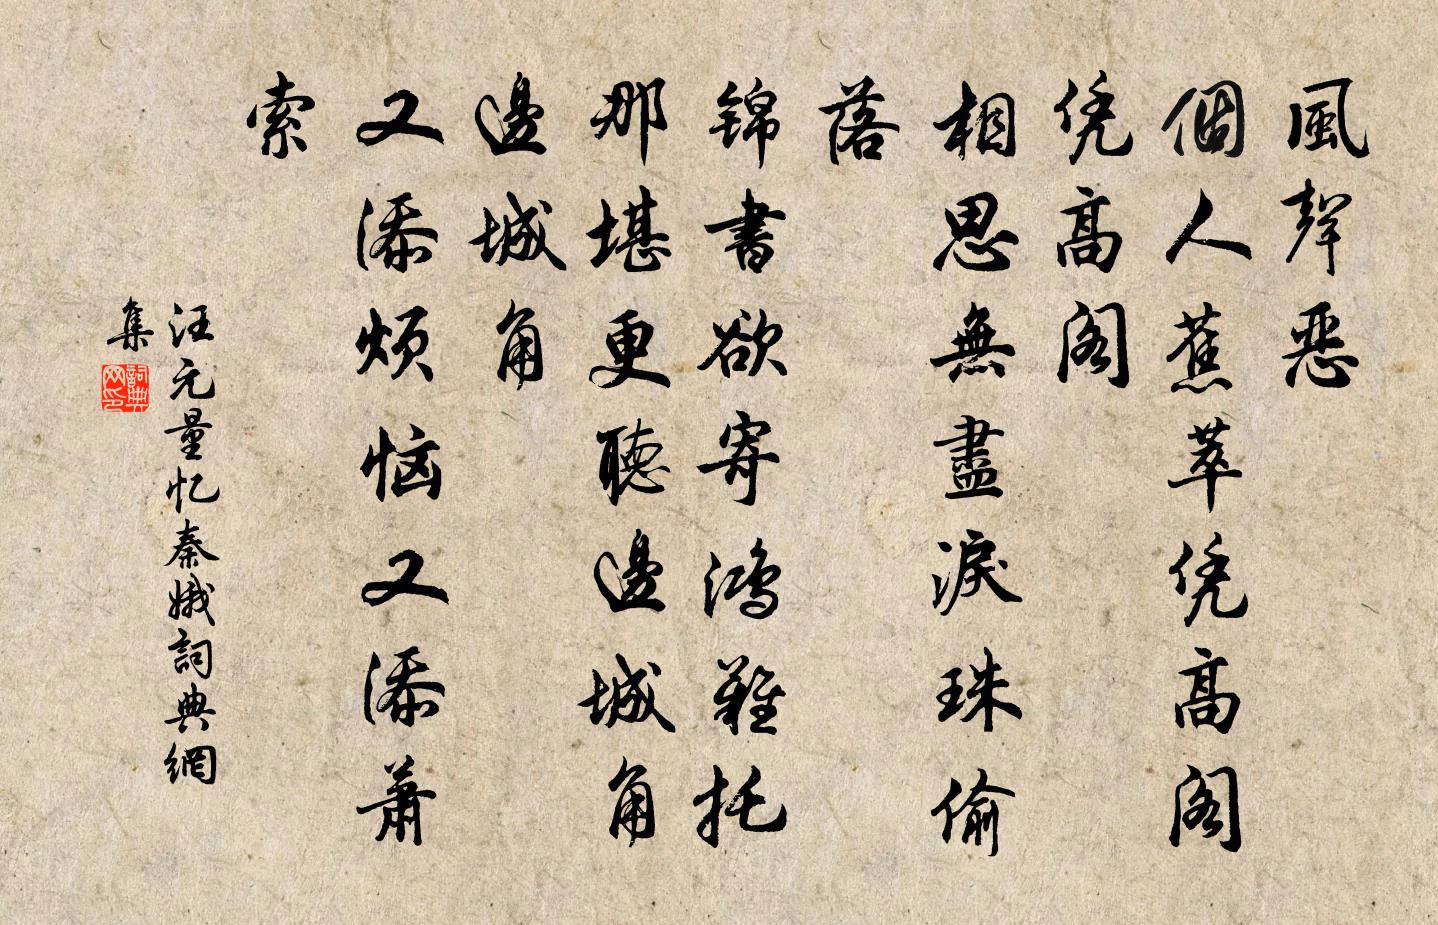 風聲惡
個人蕉萃凭高閣
凭高閣
相思無盡淚珠偷
落
锦書欲寄鴻難托
那堪更聽邊城角
邊城角
又添烦恼又添萧
索
汪元量忆秦娥詞典網
集
詞典
网印